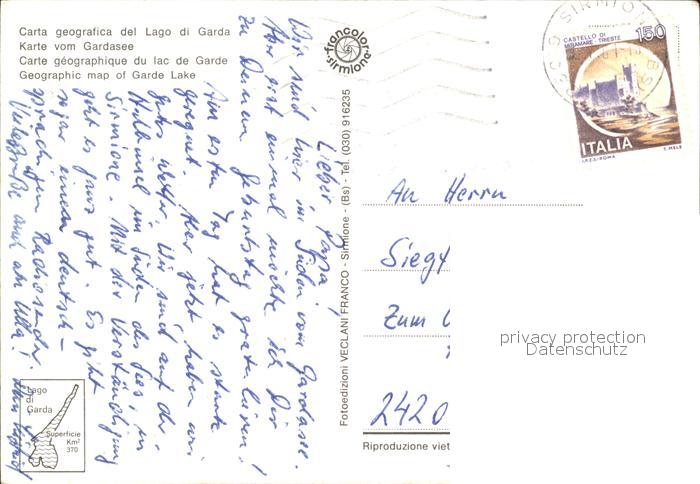 Carta geografica del Lago di Garda
Karte vom Gardasee
Carte géographique du lac de Garde
Geographic map of Garde Lake
francolor
sirmione
SIRMIONE
CASTELLO DI
MIRAMARE - TRIESTE
150
ITALIA
I.P.Z.S.-ROMA
T. MELE
Lieber Papa!
Wir sind hier im Süden vom Gardasee.
Hier erst einmal möchte ich Dir
zu Deinem Geburtstag gratulieren!
Am ersten Tag hat es stark
geregnet. Aber jetzt haben wir
gutes Wetter. Wir sind auf der
Halbinsel im Süden des Sees, in
Sirmione. Mit der Verständigung
geht es ganz gut. Es gibt
sogar einen deutsch-
sprachigen Radiosender.
Viele Grüße auch an Ulla!
Dein
Fotoedizioni VECLANI FRANCO - Sirmione - (Bs) - Tel. (030) 916235
An Herrn
Siegf
Zum
2420
Riproduzione viet
privacy protection
Datenschutz
Lago
di
Garda
Superficie
Km²
370